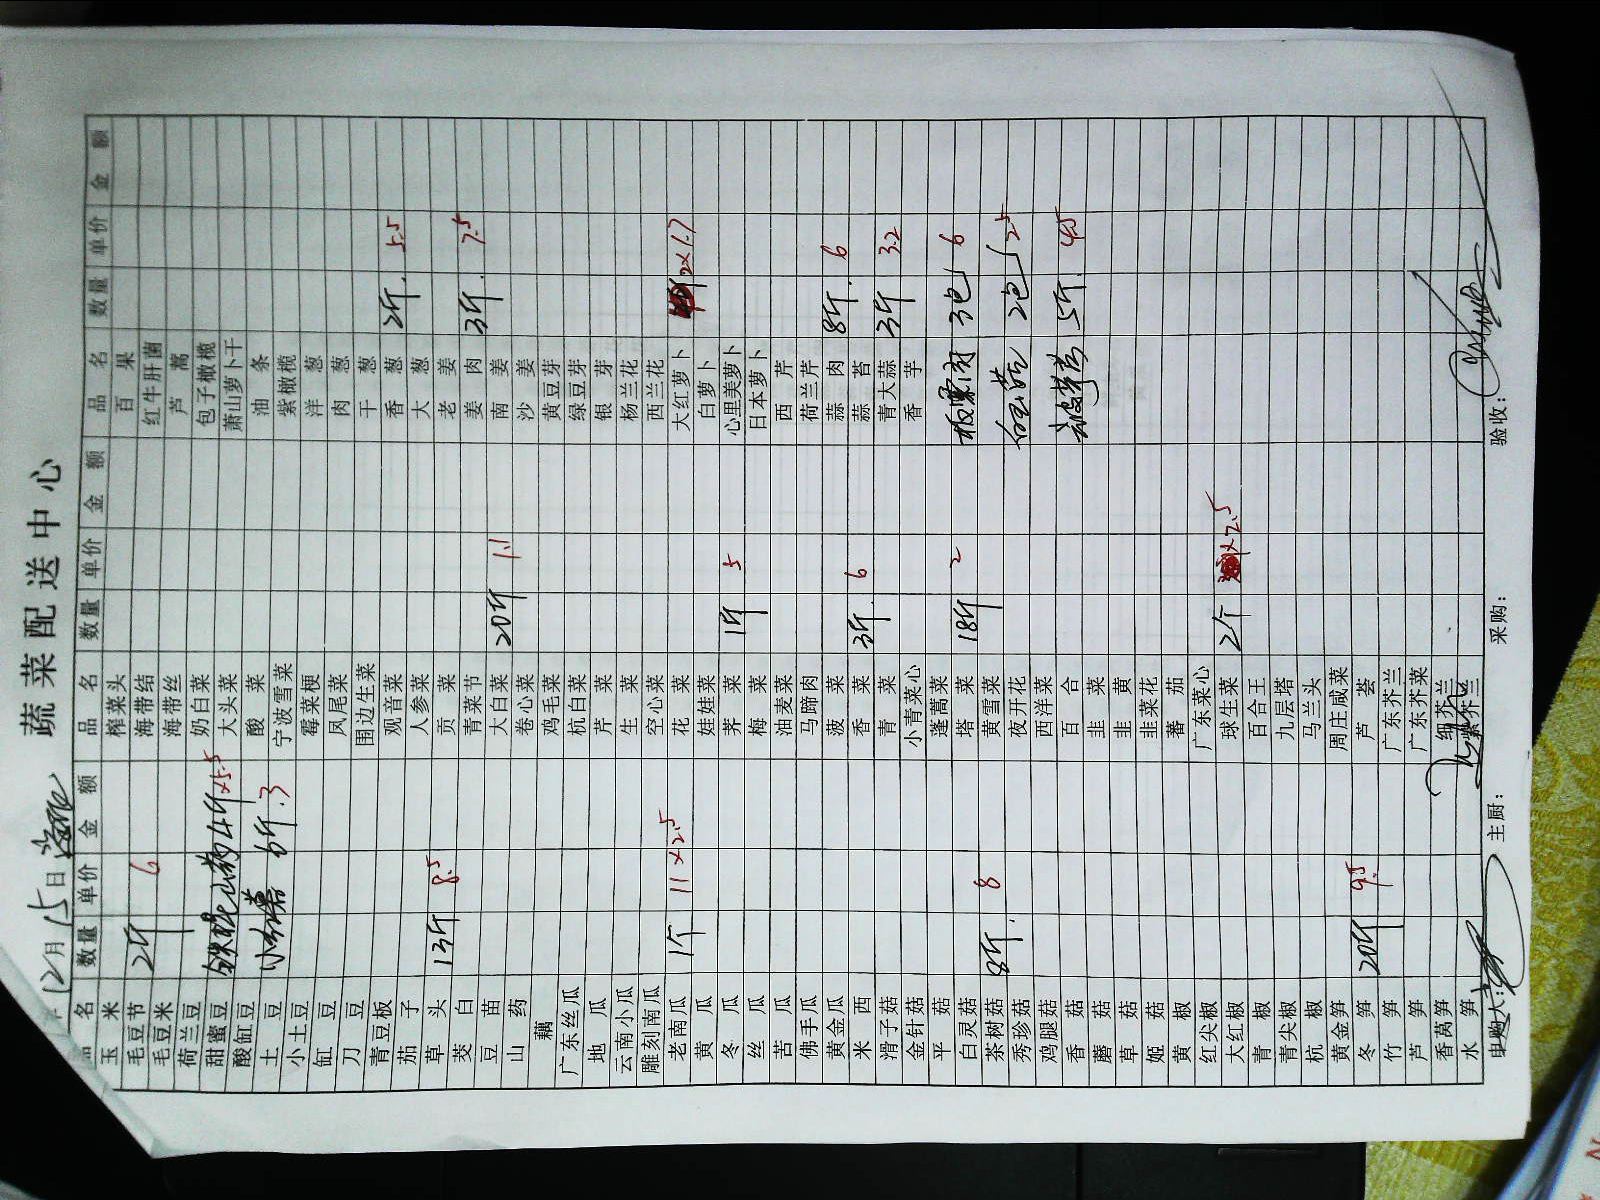 蔬菜配送中心
12月15日
品名 数量 单价 金额 品名 数量 单价 金额 品名 数量 单价 金额
玉米 榨菜头 百果
毛豆节 2斤 6 海带结 红牛肝菌
毛豆米 海带丝 芦蒿
荷兰豆 奶白菜 包子橄榄
甜蜜豆 铁棍山药 4斤 ×5.5 大头菜 萧山萝卜干
酸缸豆 酸菜 油条
土豆 6斤 .3 宁波雪菜 紫橄榄
小土豆 霉菜梗 洋葱
缸豆 凤尾菜 肉葱
刀豆 围边生菜 干葱
青豆板 观音菜 香葱 2斤 5.5
茄子 人参菜 大葱
草头 13斤 8.5 贡菜 老姜
茭白 青菜节 姜肉 3斤 7.5
豆苗 大白菜 20斤 1.1 南姜
山药 卷心菜 沙姜
藕 鸡毛菜 黄豆芽
广东丝瓜 杭白菜 绿豆芽
地瓜 芹菜 银芽
云南小瓜 生菜 杨兰花
雕刻南瓜 空心菜 西兰花
老南瓜 1个 11×2.5 花菜 大红萝卜 2×1.7
黄瓜 娃娃菜 白萝卜
冬瓜 荠菜 1斤 5 心里美萝卜
丝瓜 梅菜 日本萝卜
苦瓜 油麦菜 西芹
佛手瓜 马蹄肉 荷兰芹
黄金瓜 菠菜 蒜肉 8斤 6
米西 香菜 3斤 6 蒜苔
滑子菇 青菜 青大蒜 3斤 3.2
金针菇 小青菜心 香芋
平菇 蓬蒿菜
白灵菇 塔菜 18斤 2 板栗肉 3包 6
茶树菇 8斤 8 黄雪菜
秀珍菇 夜开花 白玉菇 2包 2.5
鸡腿菇 西洋菜
香菇 百合 去皮荸荠 5斤 4.5
蘑菇 韭菜
草菇 韭黄
姬菇 韭菜花
黄椒 蕃茄
红尖椒 广东菜心
大红椒 球生菜 2个 ×2.5
青椒 百合王
青尖椒 九层塔
杭椒 马兰头
黄金笋 周庄咸菜
冬笋 20斤 9.5 芦荟
竹笋 广东芥兰
芦笋 广东芥菜
香莴笋 红芥兰
水笋 紫芥兰
申购人: 主厨: 采购: 验收: